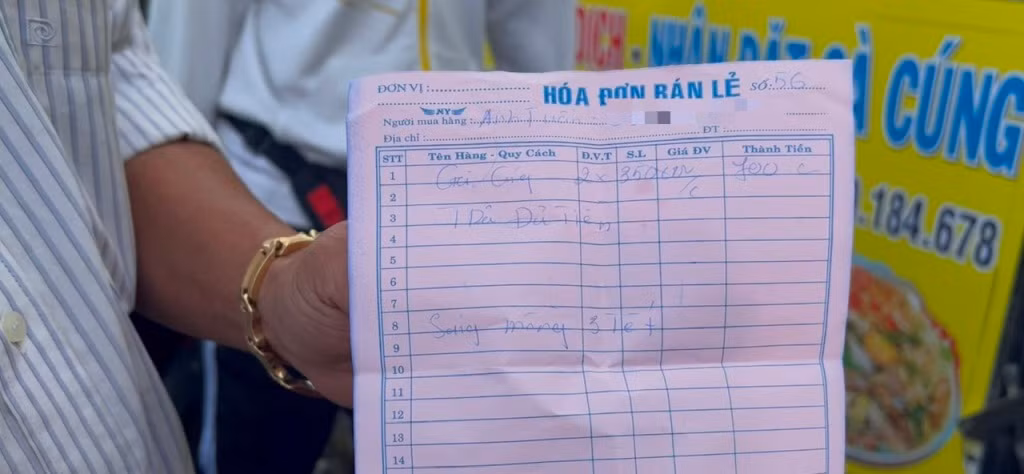 ĐƠN VỊ :
HÓA ĐƠN BÁN LẺ
SỐ: 56
NY
Người mua hàng :
Địa chỉ : ĐT :
STT Tên Hàng - Quy Cách Đ.V.T S.L Giá ĐV Thành Tiền
1 2x 350 700
2
3 Đã Đủ Tiền
4
5
6
7
8 Sáng mồng 3 Tết
9
10
11
12
13
14
DỊCH - NHẬN ĐẶT GÀ CÚNG
.184.678